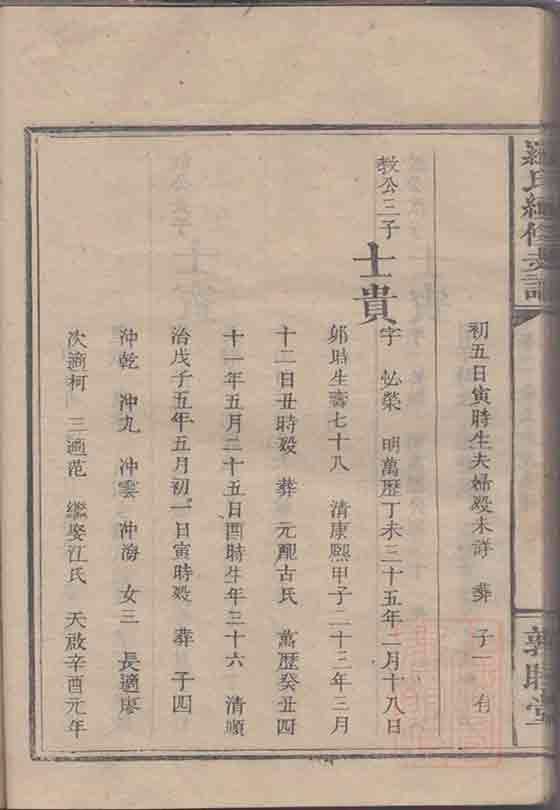 羅氏續修支譜
敦睦堂
初五日寅時生夫婦歿未詳 葬 子一 有
教公三子
士貴
字 必榮 明萬歷丁未三十五年二月十八日
卯時生壽七十八 清康熙甲子二十三年三月
十二日丑時歿 葬 元配古氏 萬歷癸丑四
十一年五月二十五日酉時生年三十六 清順
治戊子五年五月初一日寅時歿 葬 子四
沖乾 沖九 沖雲 沖海 女三 長適廖
次適柯 三適范 繼娶江氏 天啟辛酉元年